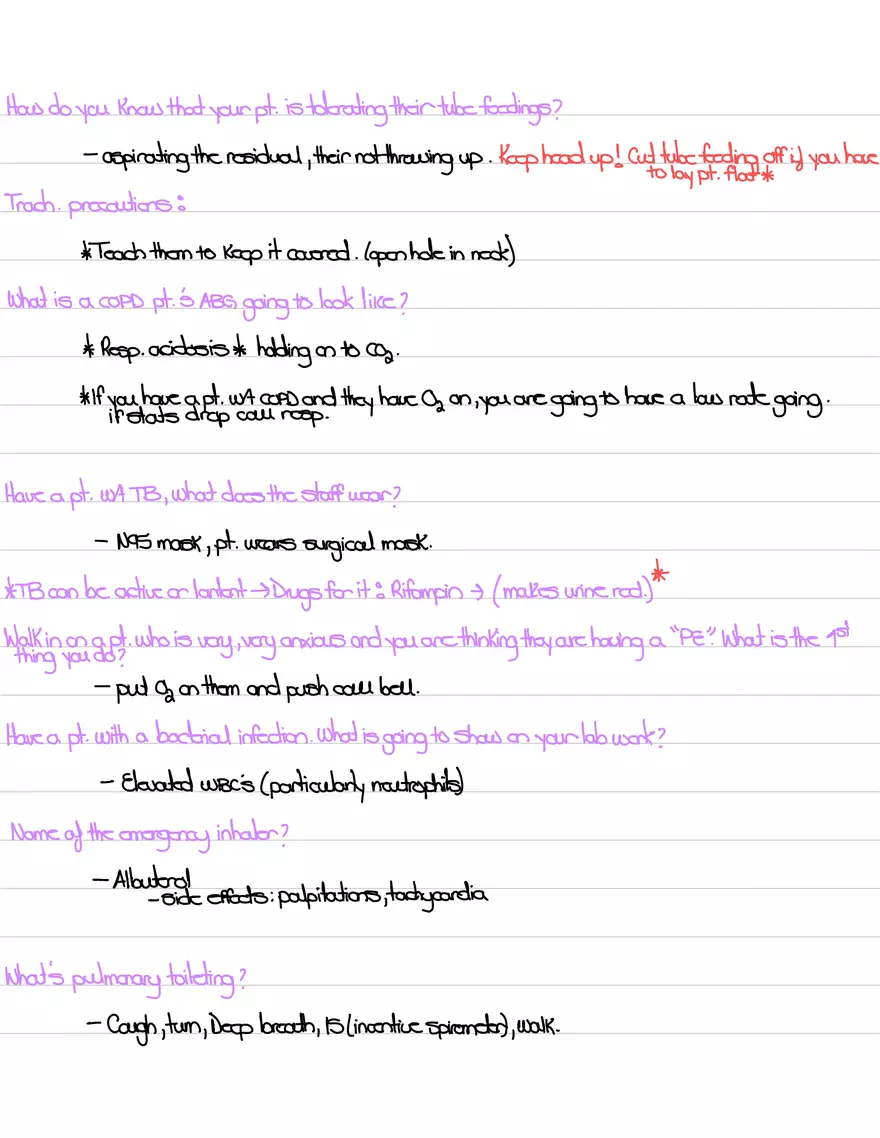 How do you know that your pt. is tolerating their tube feedings?
- aspirating the residual, their not throwing up. Keep head up! Cut tube feeding off if you have
to lay pt. flat*
Trach. precautions:
*Teach them to keep it covered. (open hole in neck)
What is a COPD pt.'s ABG going to look like?
* Resp. acidosis * holding on to CO2.
*If you have a pt. w/ COPD and they have O2 on, you are going to have a low rate going.
if stats drop call resp.
Have a pt. w/ TB, what does the staff wear?
- N95 mask, pt. wears surgical mask.
*TB can be active or lantent → Drugs for it: Rifampin → (makes urine red.)*
Walk in on a pt. who is very, very anxious and you are thinking they are having a "PE". What is the 1st
thing you do?
- put O2 on them and push call bell.
Have a pt. with a bacterial infection. What is going to show on your lab work?
- Elevated WBC's (particularly neutrophils)
Name of the emergency inhaler?
- Albuterol
- side effects: palpitations, tachycardia
What's pulmonary toileting?
- Cough, turn, Deep breath, IS (incentive spirometer), walk.